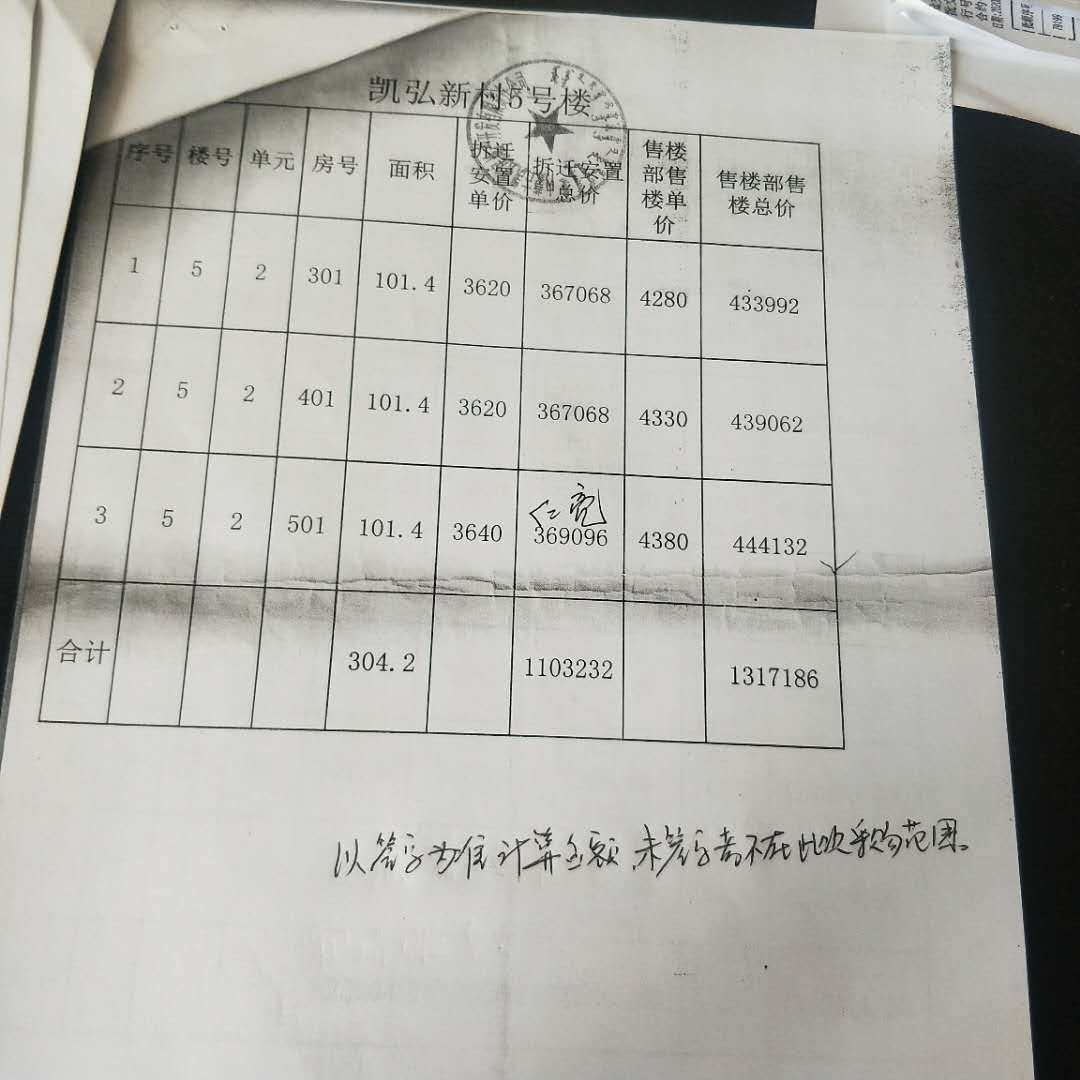 凯弘新村5号楼
序号 楼号 单元 房号 面积 拆迁安置单价 拆迁安置总价 售楼部售楼单价 售楼部售楼总价
1 5 2 301 101.4 3620 367068 4280 433992
2 5 2 401 101.4 3620 367068 4330 439062
3 5 2 501 101.4 3640 369096 4380 444132
合计 304.2 1103232 1317186
以签字为准计算金额 未签字者不在此次采购范围。